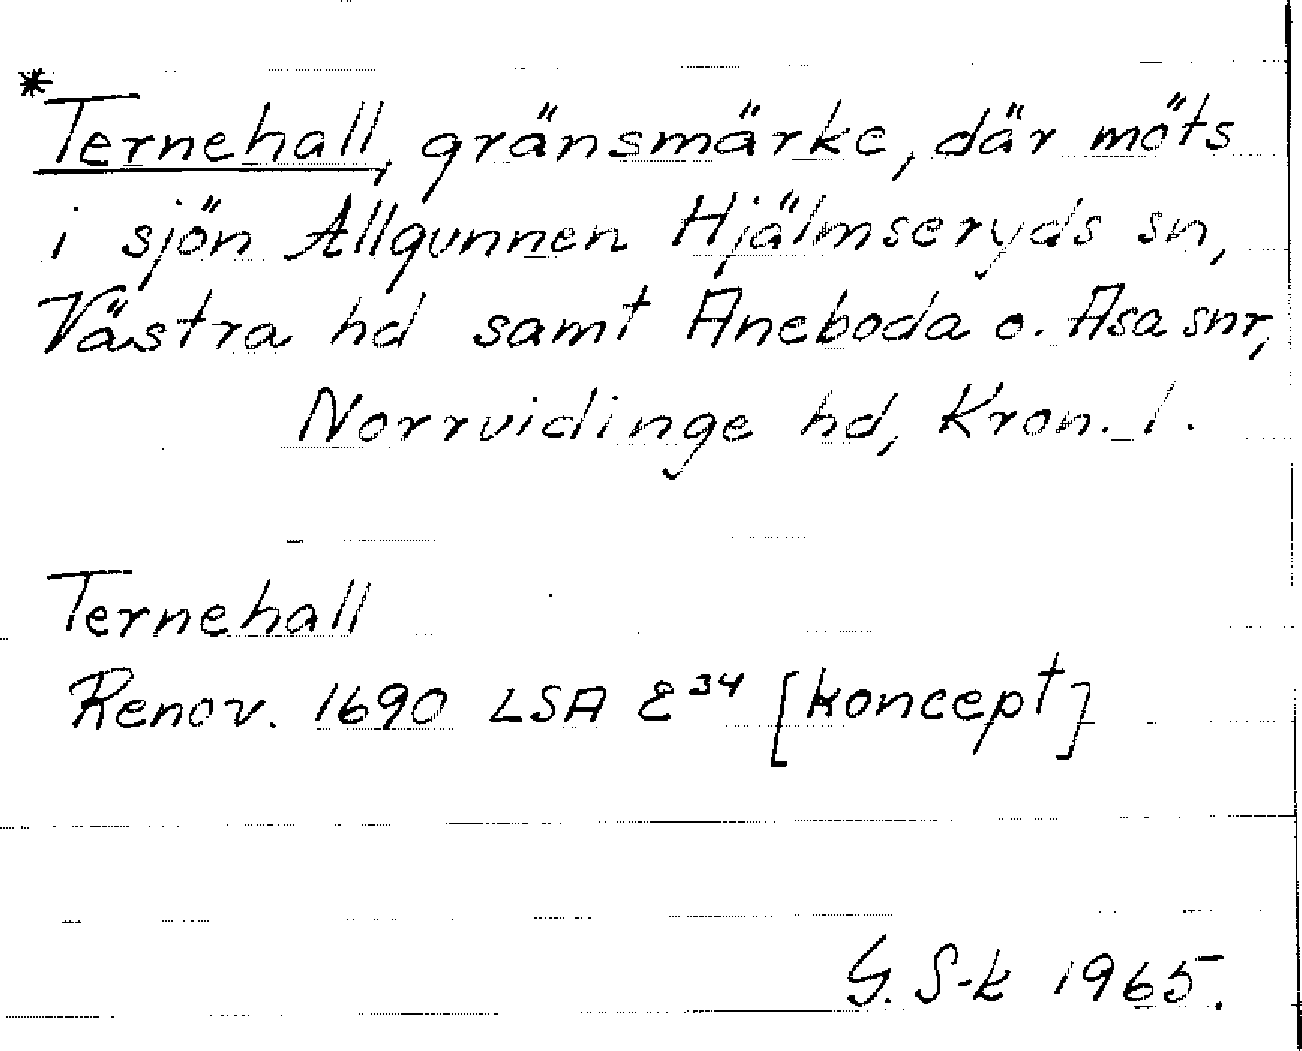 *Ternehall, gränsmärke, där möts
i sjön Allgunnen Hjälmseryds sn,
Västra hd samt Aneboda o. Asa snr,
Norrvidinge hd, Kron. l.
Ternehall
Renov. 1690 LSA E³⁴ [koncept]
G. S-k 1965.